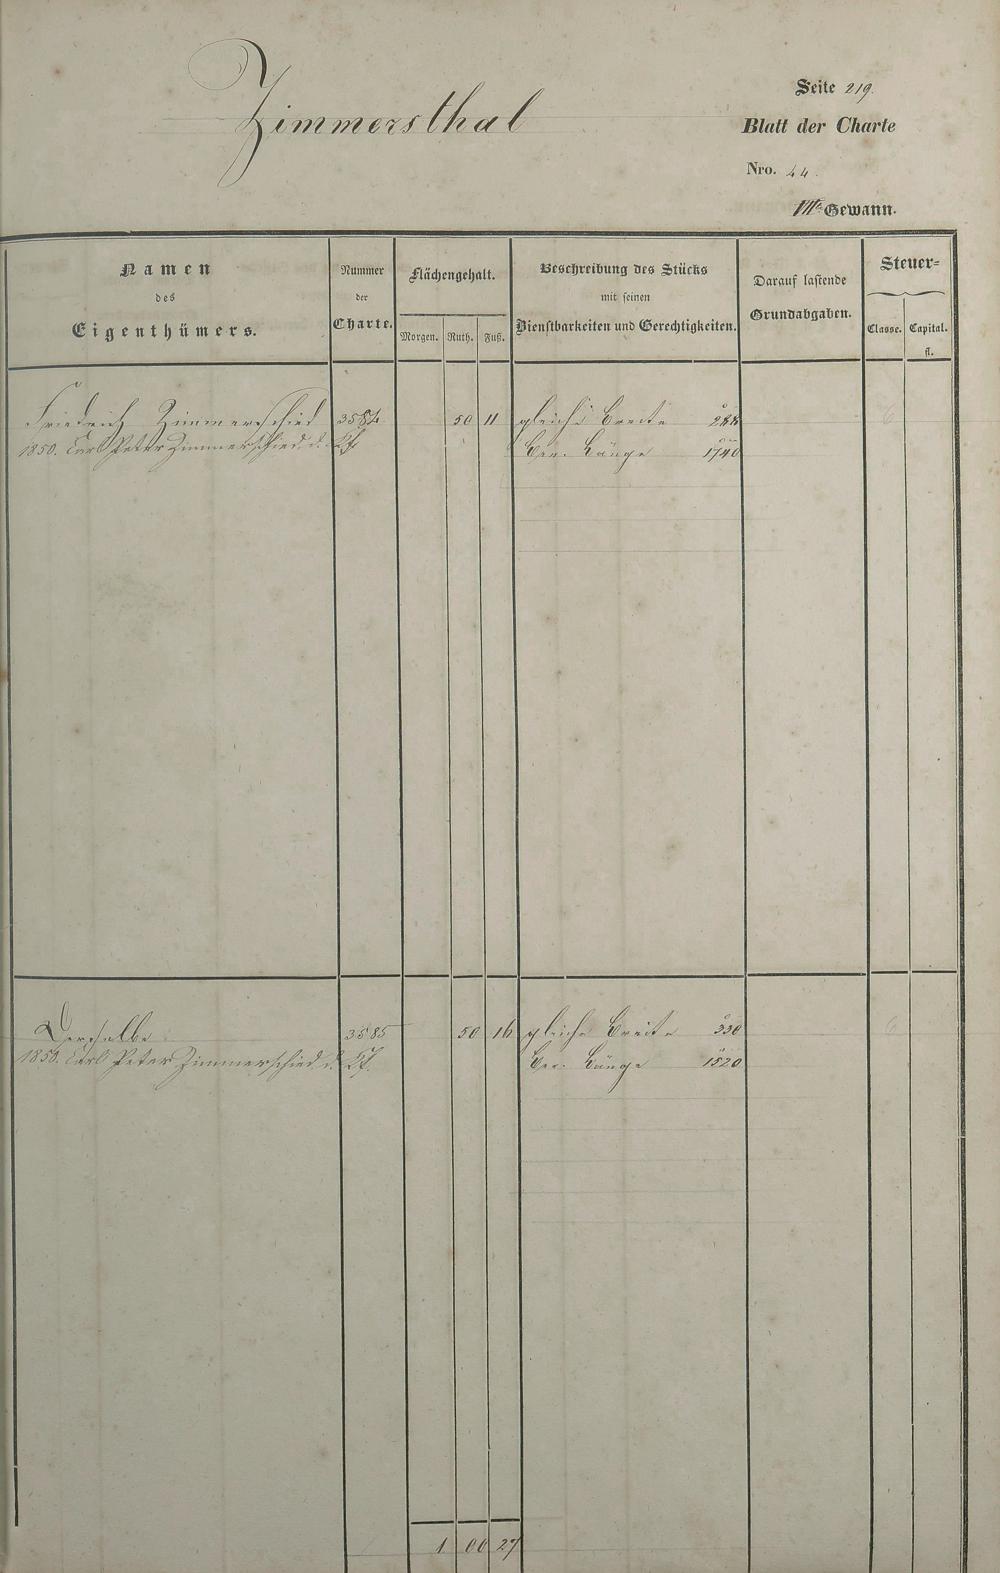 Zimmersthal
Seite 219.
Blatt der Charte
Nro. 44.
VIIte Gewann.
Namen des Eigenthümers.
Nummer der Charte.
Flächengehalt.
Morgen. Ruth. Fuß.
Beschreibung des Stücks mit seinen Dienstbarkeiten und Gerechtigkeiten.
Darauf lastende Grundabgaben.
Steuer=
Classe. Capital. fl.
Friedrich Zimmerschied 3584 50 11 gleiche Breite 288 6
1850. Carl Peter Zimmerschied d. Kf. Ber. Länge 1740
Derselbe 3585 50 16 gleiche Breite 330 6
1850. Carl Peter Zimmerschied d. Kf. Ber. Länge 1520
1 00 27